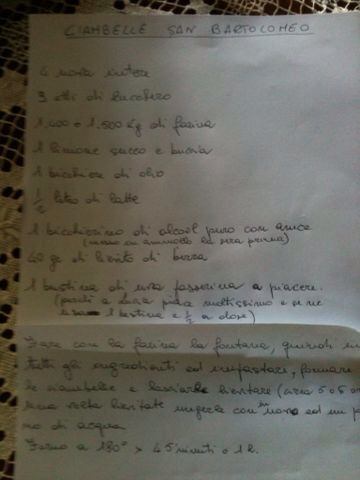 CIAMBELLE SAN BARTOLOMEO
4 uova intere
3 etti di zucchero
1.400 o 1.500 kg di farina
1 limone succo e buccia
1 bicchiere di olio
1/2 litro di latte
1 bicchierino di alcool puro con anice
(messo in ammollo la sera prima)
40 gr di lievito di birra
1 bustina di uva passerina a piacere.
(perchè a Luca piace moltissimo e se ne
usa 1 bustina e 1/2 a dose)
Fare con la farina la fontana, quindi
tutti gli ingredienti ed impastare, formare
le ciambelle e lasciarle lievitare (circa 5 o 6
una volta lievitate ungerle con un uovo ed un
no di acqua
Forno a 180° x 45 minuti o 1 h.